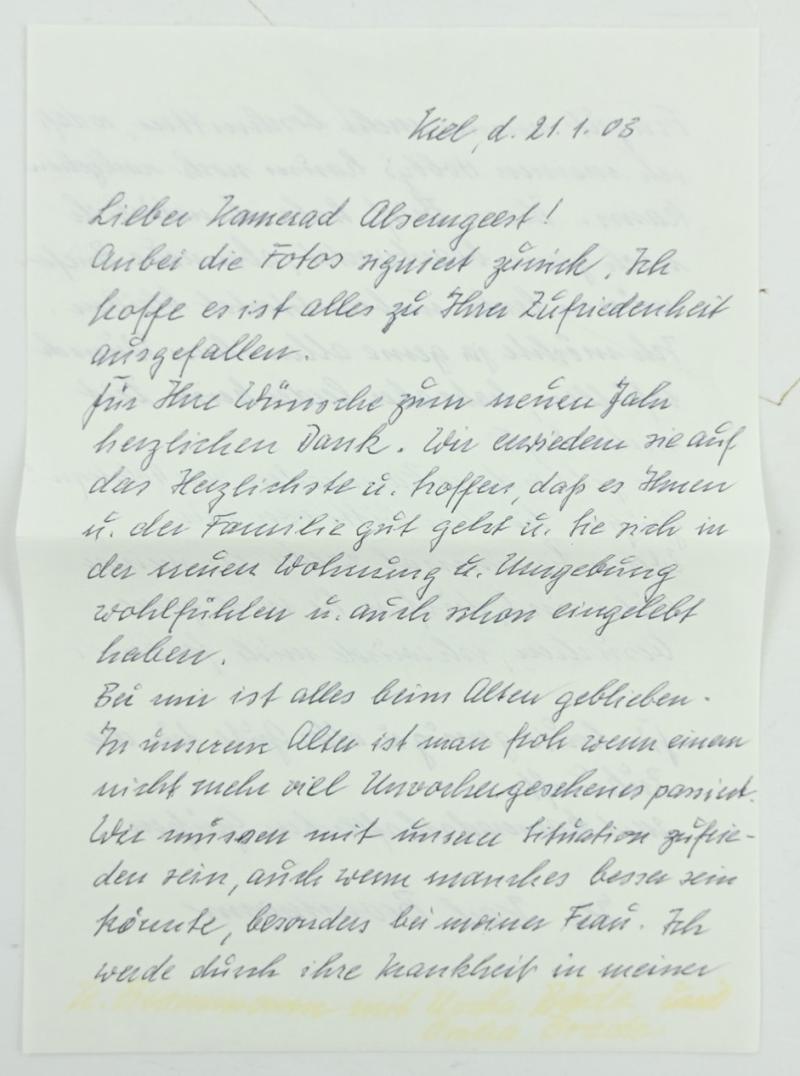 Kiel, d. 21.1.03
Lieber Kamerad Alsemgeest!
Anbei die Fotos signiert zurück. Ich
hoffe es ist alles zu Ihrer Zufriedenheit
ausgefallen.
Für Ihre Wünsche zum neuen Jahr
herzlichen Dank. Wir erwiedern sie auf
das Herzlichste u. hoffen, daß es Ihnen
u. der Familie gut geht u. Sie sich in
der neuen Wohnung u. Umgebung
wohlfühlen u. auch schon eingelebt
haben.
Bei mir ist alles beim Alten geblieben.
In unserem Alter ist man froh wenn einem
nicht mehr viel Unvorhergesehenes passiert.
Wir müssen mit unserer Situation zufrie-
den sein, auch wenn manches besser sein
könnte, besonders bei meiner Frau. Ich
werde durch ihre Krankheit in meiner
mit